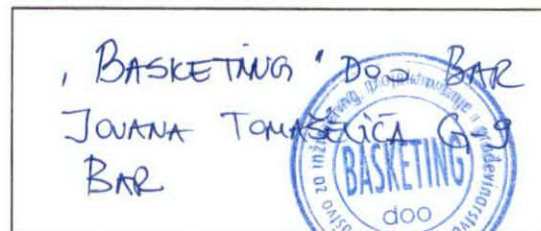 , BASKETING " DOO BAR
JOVANA TOMAŠEVIĆA G-9
BAR
inženjering, projektovanje i građevinarstvo
BASKETING
doo